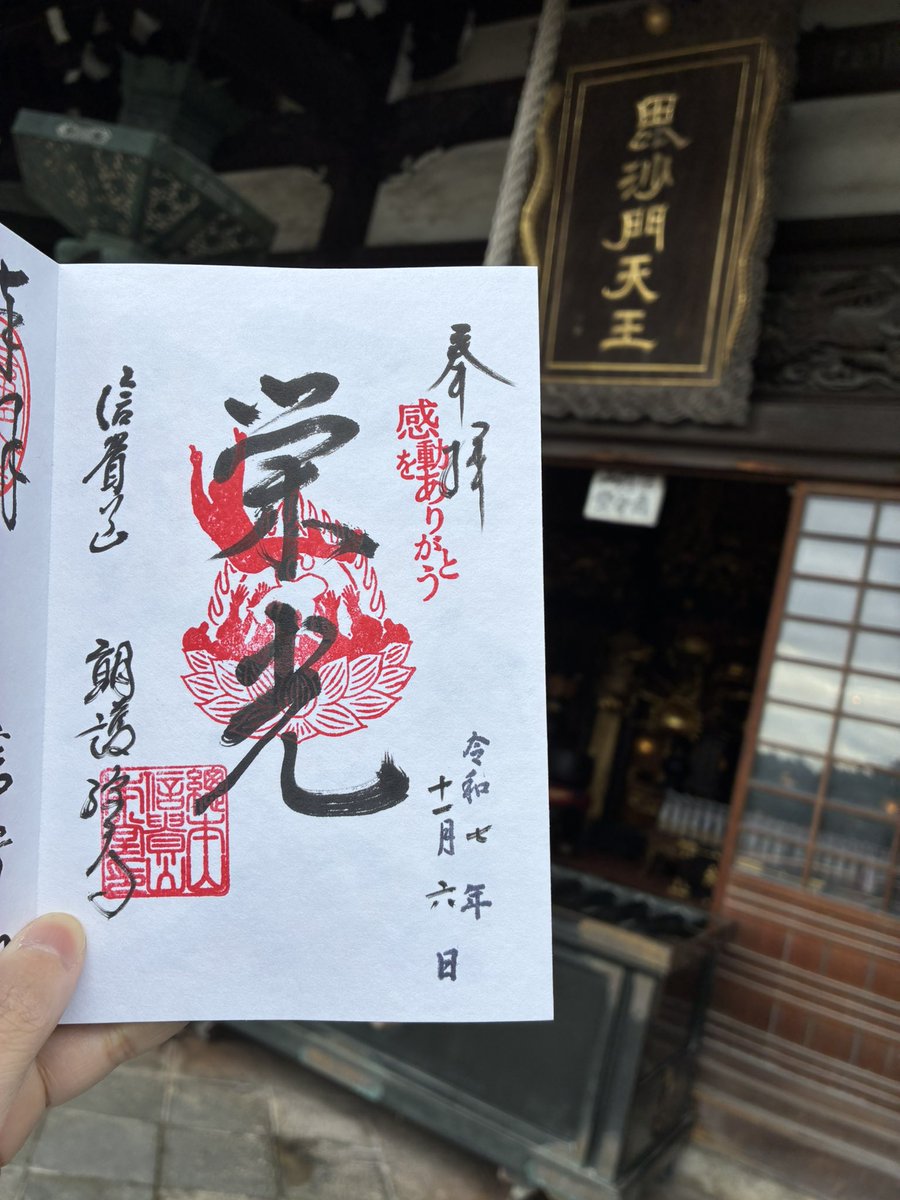 毘沙門天王
奉拝
感動を
ありがとう
栄光
令和七年
十一月六日
信貴山
朝護孫子
總本山
信貴山